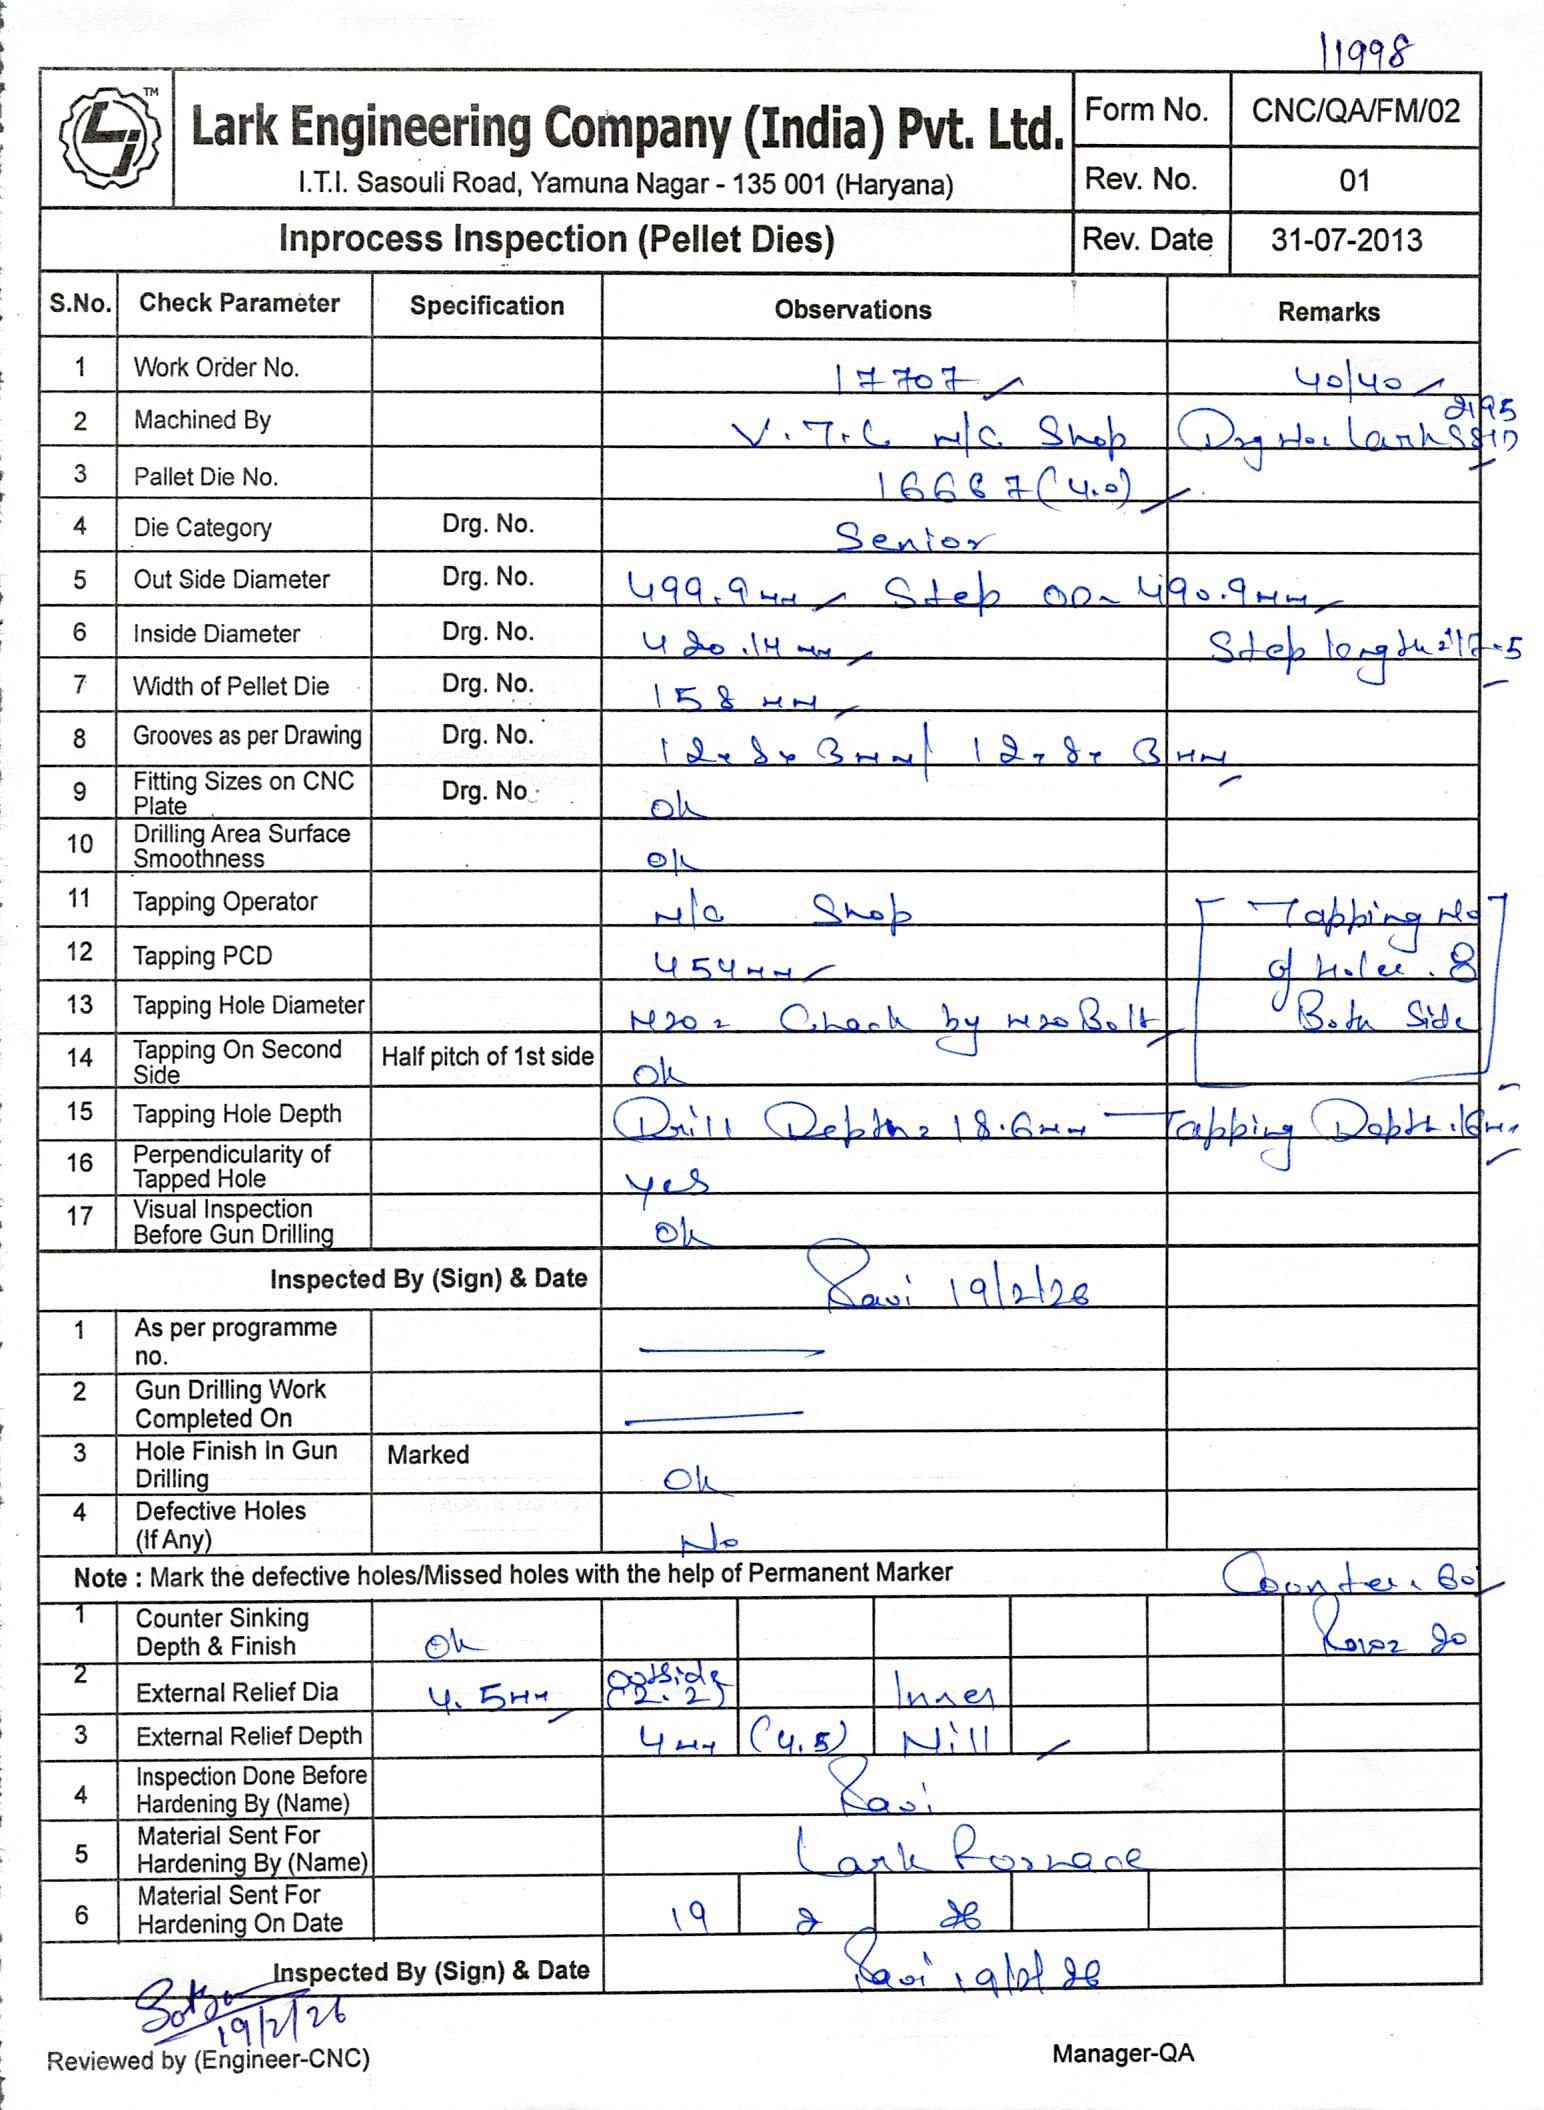 11998
TM
Lark Engineering Company (India) Pvt. Ltd.
I.T.I. Sasouli Road, Yamuna Nagar - 135 001 (Haryana)
Form No. CNC/QA/FM/02
Rev. No. 01
Inprocess Inspection (Pellet Dies) Rev. Date 31-07-2013
S.No. Check Parameter Specification Observations Remarks
1 Work Order No. 17707 40/40
2 Machined By V.T.L M/C Shop Drg No: Lark
3 Pallet Die No. 16667 (4.0)
4 Die Category Drg. No. Senior
5 Out Side Diameter Drg. No. 499.9mm Step OD- 490.9mm
6 Inside Diameter Drg. No. 420.14 mm Step length = 117.5
7 Width of Pellet Die Drg. No. 158 mm
8 Grooves as per Drawing Drg. No. 12x8x3mm/ 12x8x3mm
9 Fitting Sizes on CNC Plate Drg. No. Ok
10 Drilling Area Surface Smoothness Ok
11 Tapping Operator M/C Shop Tapping No
12 Tapping PCD 454mm of Holes. 8
13 Tapping Hole Diameter M20 = Check by M20 Bolt Both Side
14 Tapping On Second Side Half pitch of 1st side Ok
15 Tapping Hole Depth Drill Depth = 18.6mm Tapping Depth. 16mm
16 Perpendicularity of Tapped Hole yes
17 Visual Inspection Before Gun Drilling Ok
Inspected By (Sign) & Date Ravi 19/2/26
1 As per programme no.
2 Gun Drilling Work Completed On
3 Hole Finish In Gun Drilling Marked Ok
4 Defective Holes (If Any) No
Note : Mark the defective holes/Missed holes with the help of Permanent Marker Counter. 60
1 Counter Sinking Depth & Finish Ok 20
2 External Relief Dia 4.5mm Outside (2.2) Inner
3 External Relief Depth 4mm (4.5) Nill
4 Inspection Done Before Hardening By (Name) Ravi
5 Material Sent For Hardening By (Name) Lark Fornace
6 Material Sent For Hardening On Date 19 2 26
Inspected By (Sign) & Date Ravi 19/2/26
19/2/26
Reviewed by (Engineer-CNC) Manager-QA